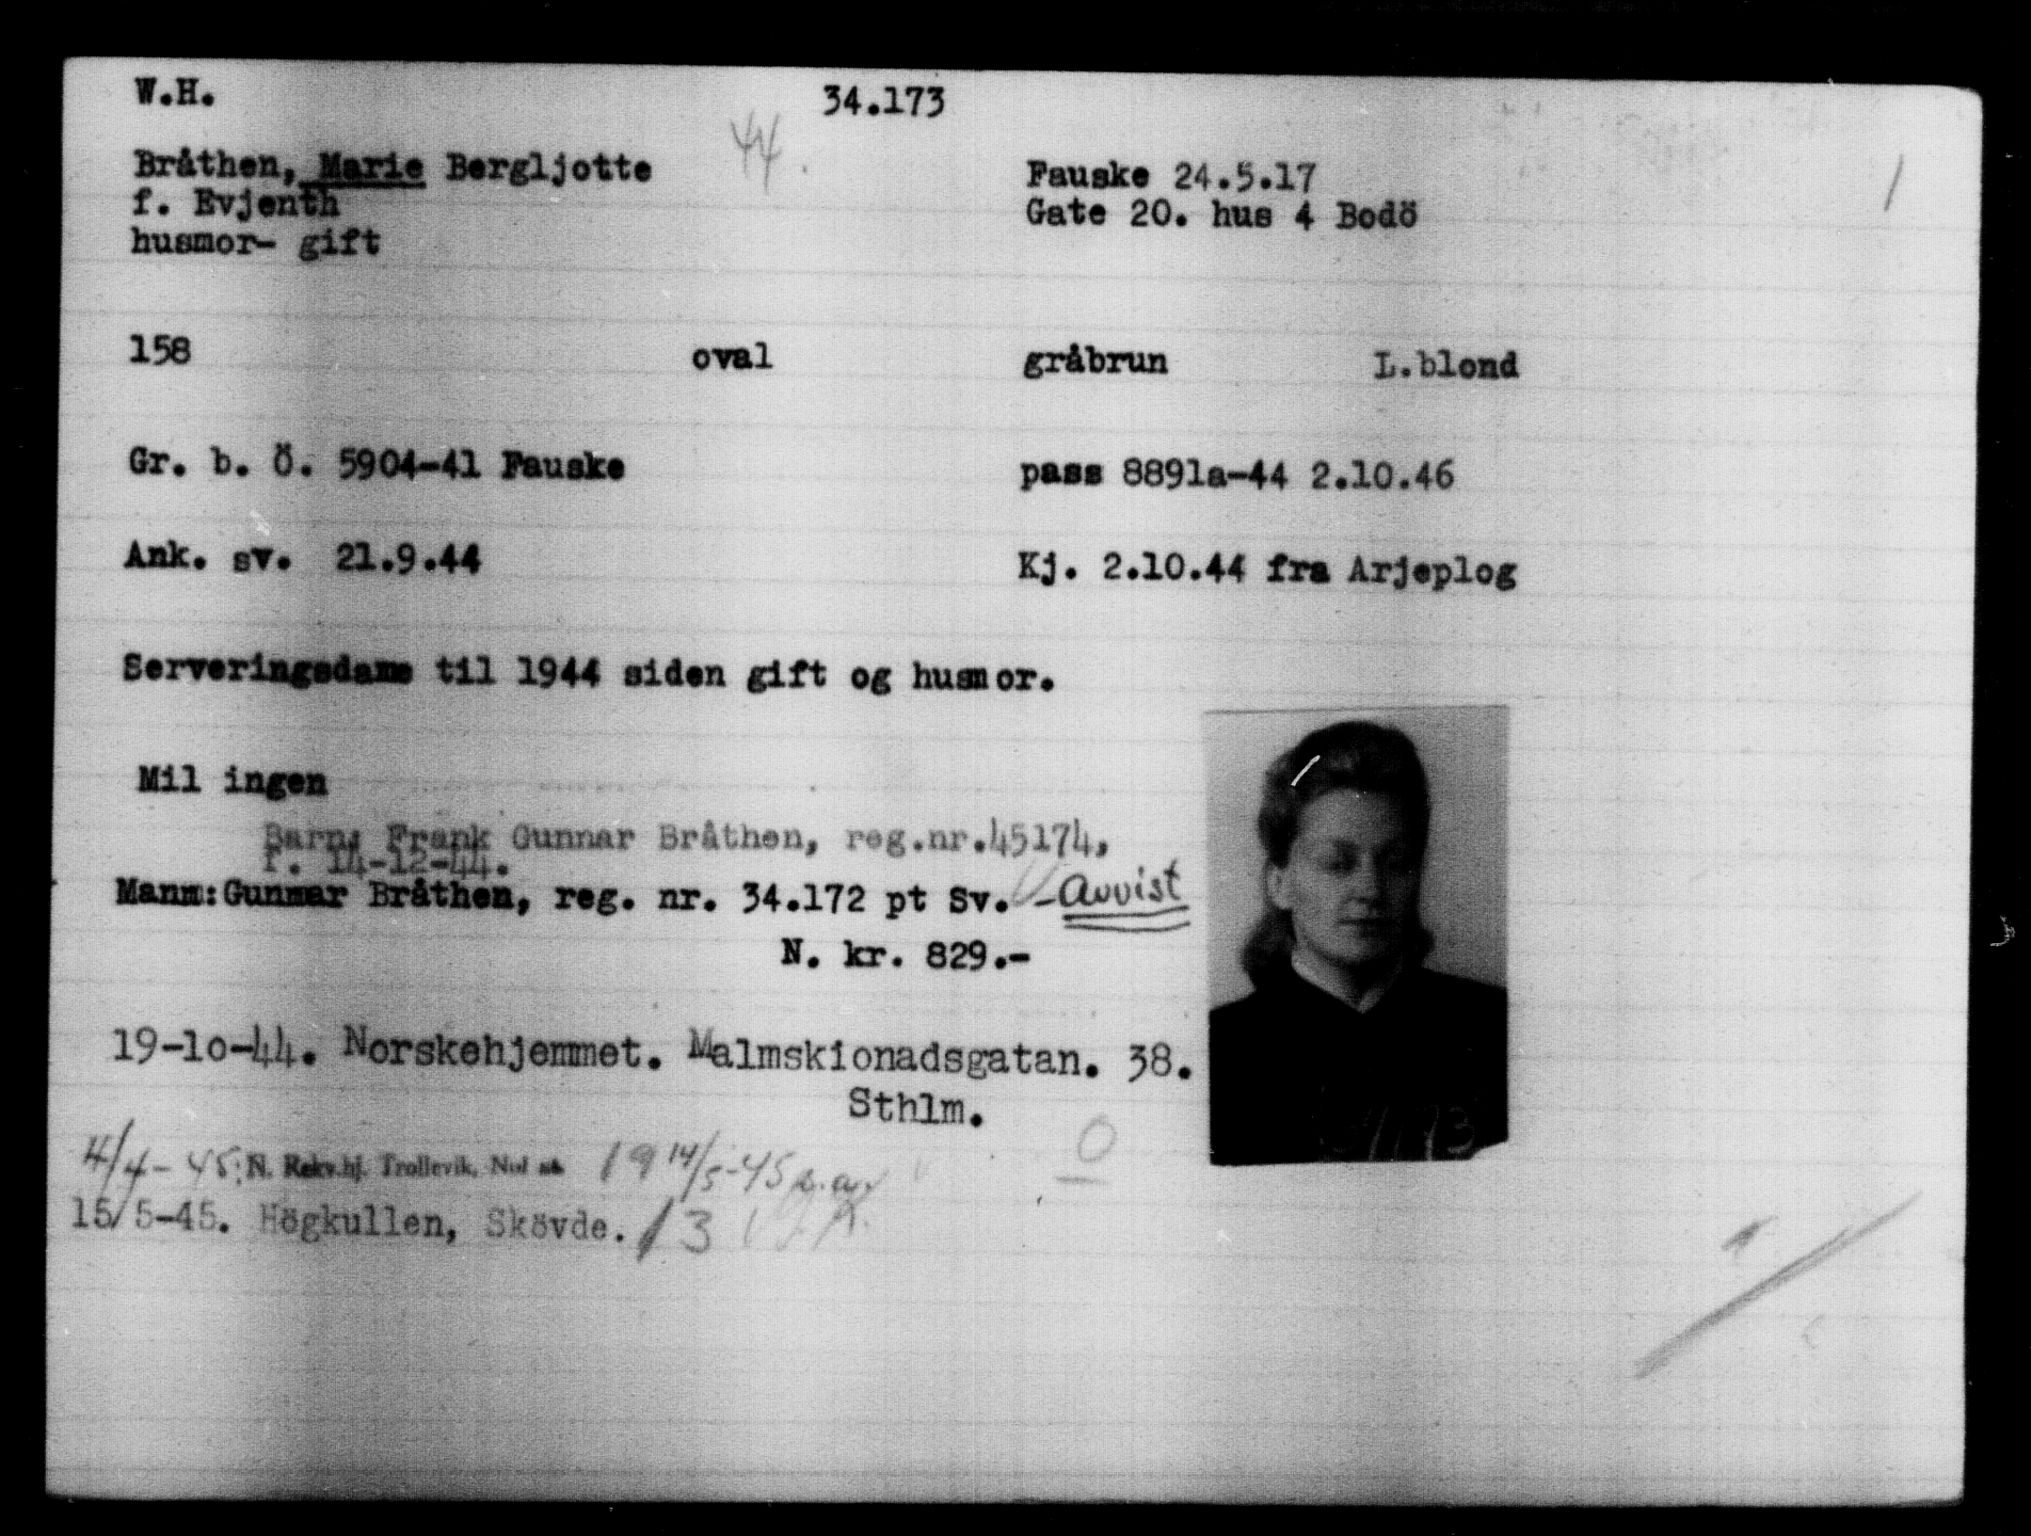 W.H.
34.173
44.
Bråthen, Marie Bergljotte
Fauske 24.5.17
f. Evjenth
Gate 20. hus 4 Bodö
husmor- gift
158 oval gråbrun L.blond
Gr. b. Ö. 5904-41 Fauske
pass 8891a-44 2.10.46
Ank. sv. 21.9.44
Kj. 2.10.44 fra Arjeplog
Serveringsdame til 1944 siden gift og husmor.
Mil ingen
Barn: Frank Gunnar Bråthen, reg.nr.45174,
f. 14-12-44.
Mann: Gunnar Bråthen, reg. nr. 34.172 pt Sv. - avvist
N. kr. 829.-
19-10-44. Norskehjemmet. Malmskionadsgatan. 38.
Sthlm.
0
4/4-45: N. Rekv.hj. Trollevik, 19 14/5-45
15/5-45. Högkullen, Skövde. 13